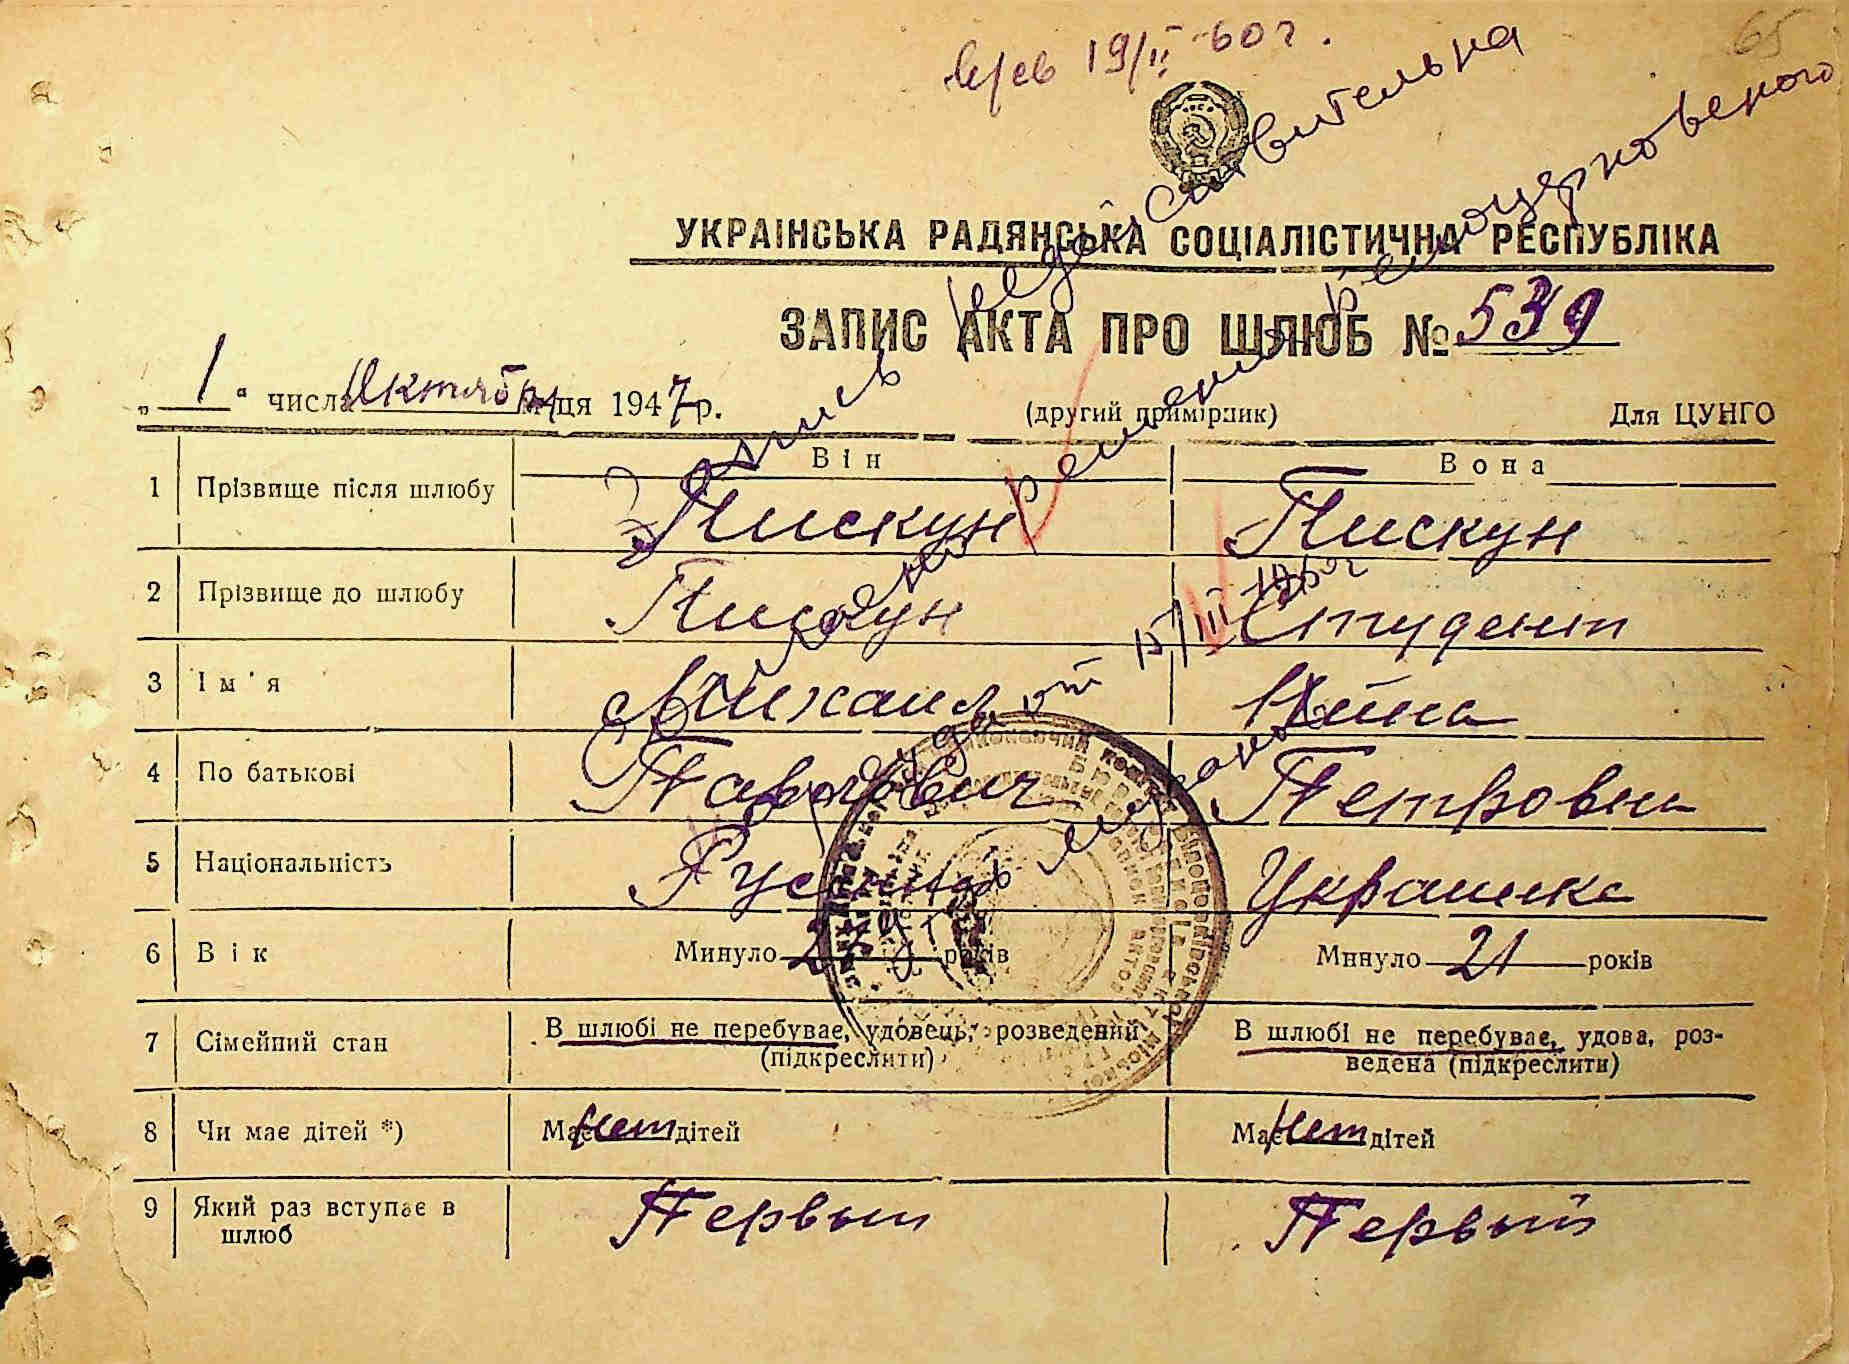 65
19/II-60 г.
УКРАЇНСЬКА РАДЯНСЬКА СОЦІАЛІСТИЧНА РЕСПУБЛІКА
ЗАПИС АКТА ПРО ШЛЮБ № 539
„ 1 “ числа Октября м-ця 1947 р.
(другий примірник) Для ЦУНГО
Запись недействительна
на основании решения Белоцерковского
нарсуда от 15/III 1960 г
Він Вона
1 Прізвище після шлюбу Пискун Пискун
2 Прізвище до шлюбу Пискун Студент
3 Ім'я Михаил Нина
4 По батькові Павлович Петровна
5 Національність Русский Украинка
6 Вік Минуло років Минуло 21 років
7 Сімейний стан В шлюбі не перебуває, удовець, розведений (підкреслити) В шлюбі не перебуває, удова, розведена (підкреслити)
8 Чи має дітей *) Має нет дітей Має нет дітей
9 Який раз вступає в шлюб Первый Первый